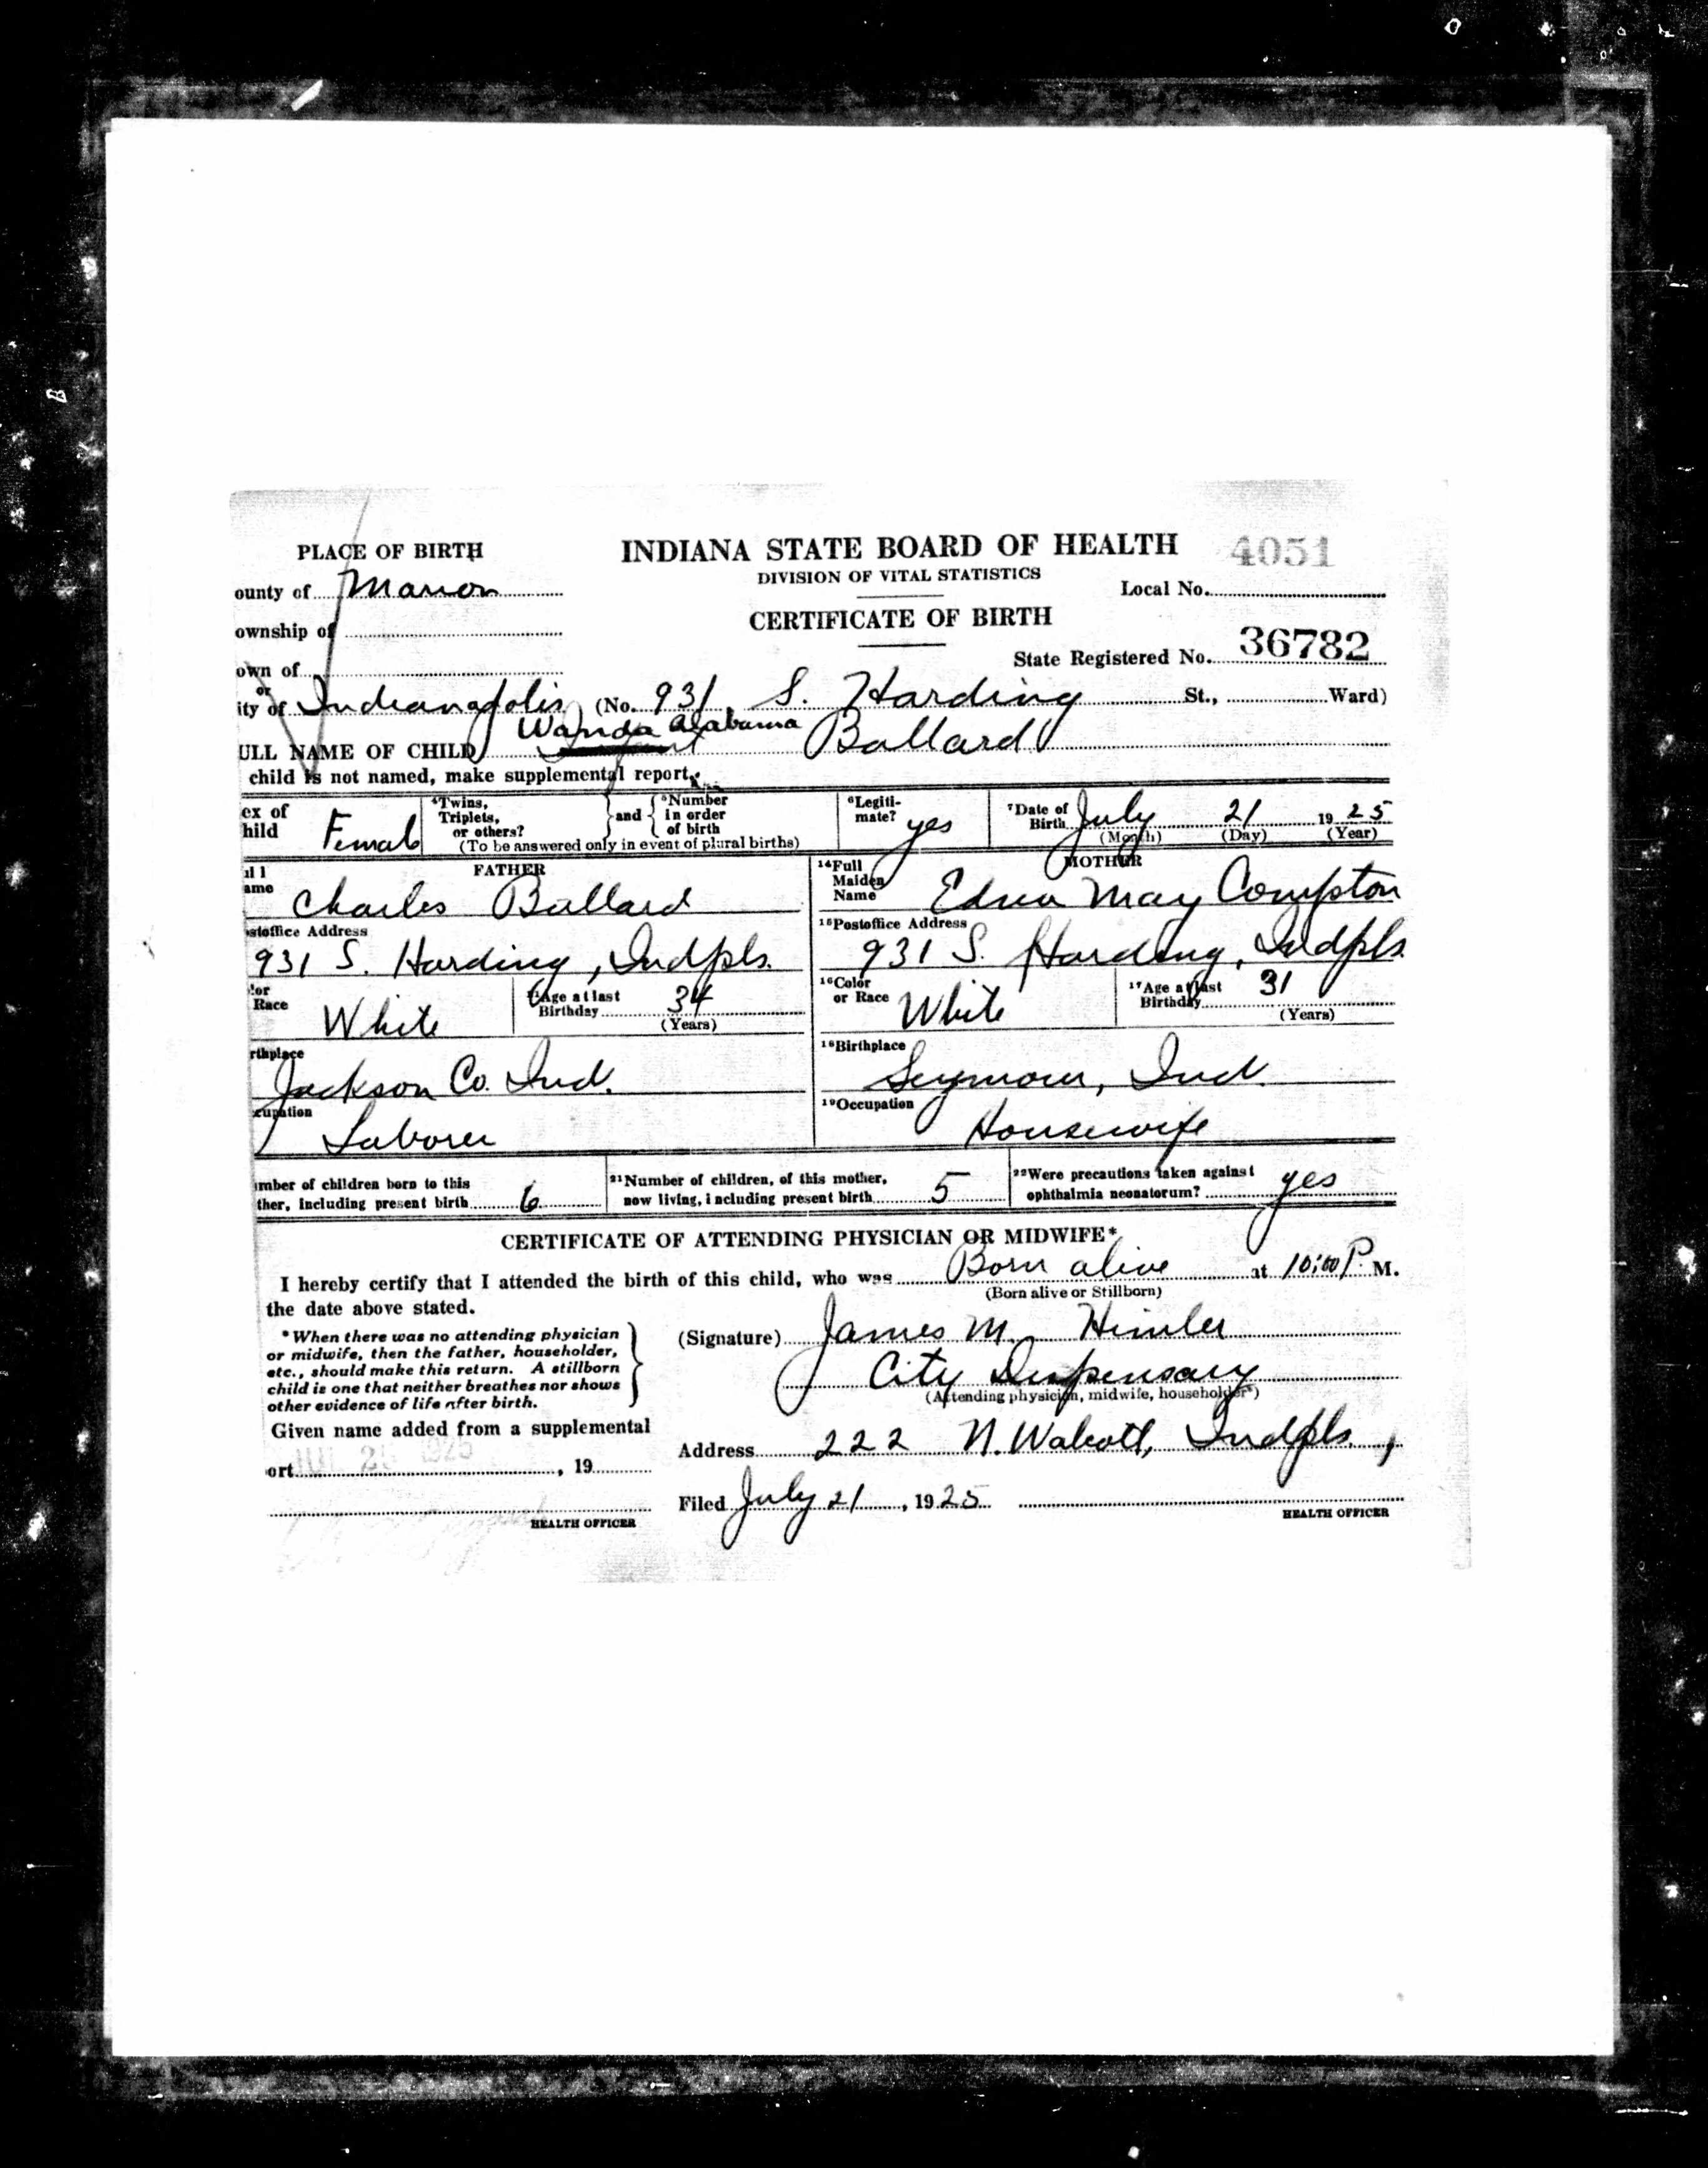 PLACE OF BIRTH
INDIANA STATE BOARD OF HEALTH
4051
DIVISION OF VITAL STATISTICS
ounty of Marion
Local No.
CERTIFICATE OF BIRTH
ownship of
State Registered No. 36782
own of
or
ity of Indianapolis (No. 931 S. Harding St., Ward)
Wanda Alabama
ULL NAME OF CHILD Ballard
child is not named, make supplemental report.
ex of hild Female
4Twins, Triplets, or others? and Number in order of birth
(To be answered only in event of plural births)
6Legiti-mate? yes
7Date of Birth July 21 1925
(Month) (Day) (Year)
FATHER
ull
ame Charles Ballard
MOTHER
14Full Maiden Name Edna May Compton
stoffice Address
931 S. Harding, Indpls.
15Postoffice Address
931 S. Harding, Indpls.
lor Race White
Age at last Birthday 34
(Years)
16Color or Race White
17Age at last Birthday 31
(Years)
rthplace
Jackson Co. Ind.
18Birthplace
Seymour, Ind.
cupation
Laborer
19Occupation
Housewife
mber of children born to this
ther, including present birth 6
21Number of children, of this mother,
now living, including present birth 5
22Were precautions taken against
ophthalmia neonatorum? yes
CERTIFICATE OF ATTENDING PHYSICIAN OR MIDWIFE*
I hereby certify that I attended the birth of this child, who was Born alive at 10:00 P. M.
(Born alive or Stillborn)
the date above stated.
*When there was no attending physician
or midwife, then the father, householder,
etc., should make this return. A stillborn
child is one that neither breathes nor shows
other evidence of life after birth.
(Signature) James M. Himler
City Dispensary
(Attending physician, midwife, householder*)
Given name added from a supplemental
ort , 19
Address 222 N. Walcott, Indpls.,
Filed July 21, 1925
HEALTH OFFICER
HEALTH OFFICER